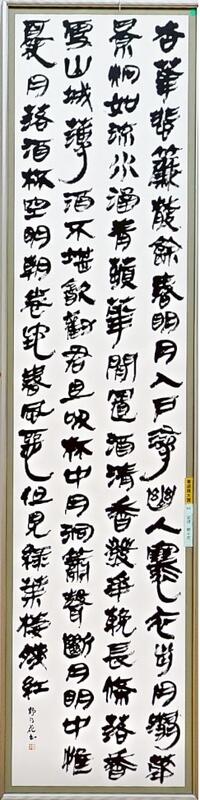 杏華飛簾散餘春明月入戶尋幽人褰衣步月踏華
景炯如流水涵青蘋華間置酒清香發爭挽長條落香
雪山城薄酒不堪飲勸君且吸杯中月洞簫聲斷月明中惟
憂月落酒杯空明朝卷地春風惡但見綠葉棲殘紅
野乃花書